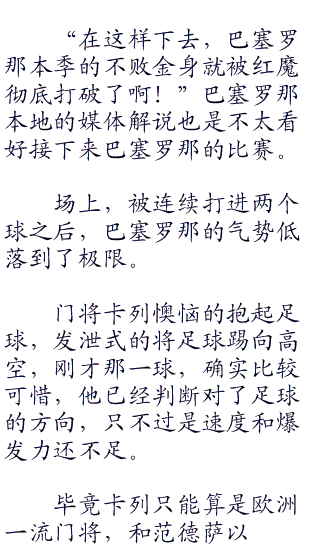 “在这样下去，巴塞罗
那本季的不败金身就被红魔
彻底打破了啊！”巴塞罗那
本地的媒体解说也是不太看
好接下来巴塞罗那的比赛。
场上，被连续打进两个
球之后，巴塞罗那的气势低
落到了极限。
门将卡列懊恼的抱起足
球，发泄式的将足球踢向高
空，刚才那一球，确实比较
可惜，他已经判断对了足球
的方向，只不过是速度和爆
发力还不足。
毕竟卡列只能算是欧洲
一流门将，和范德萨以